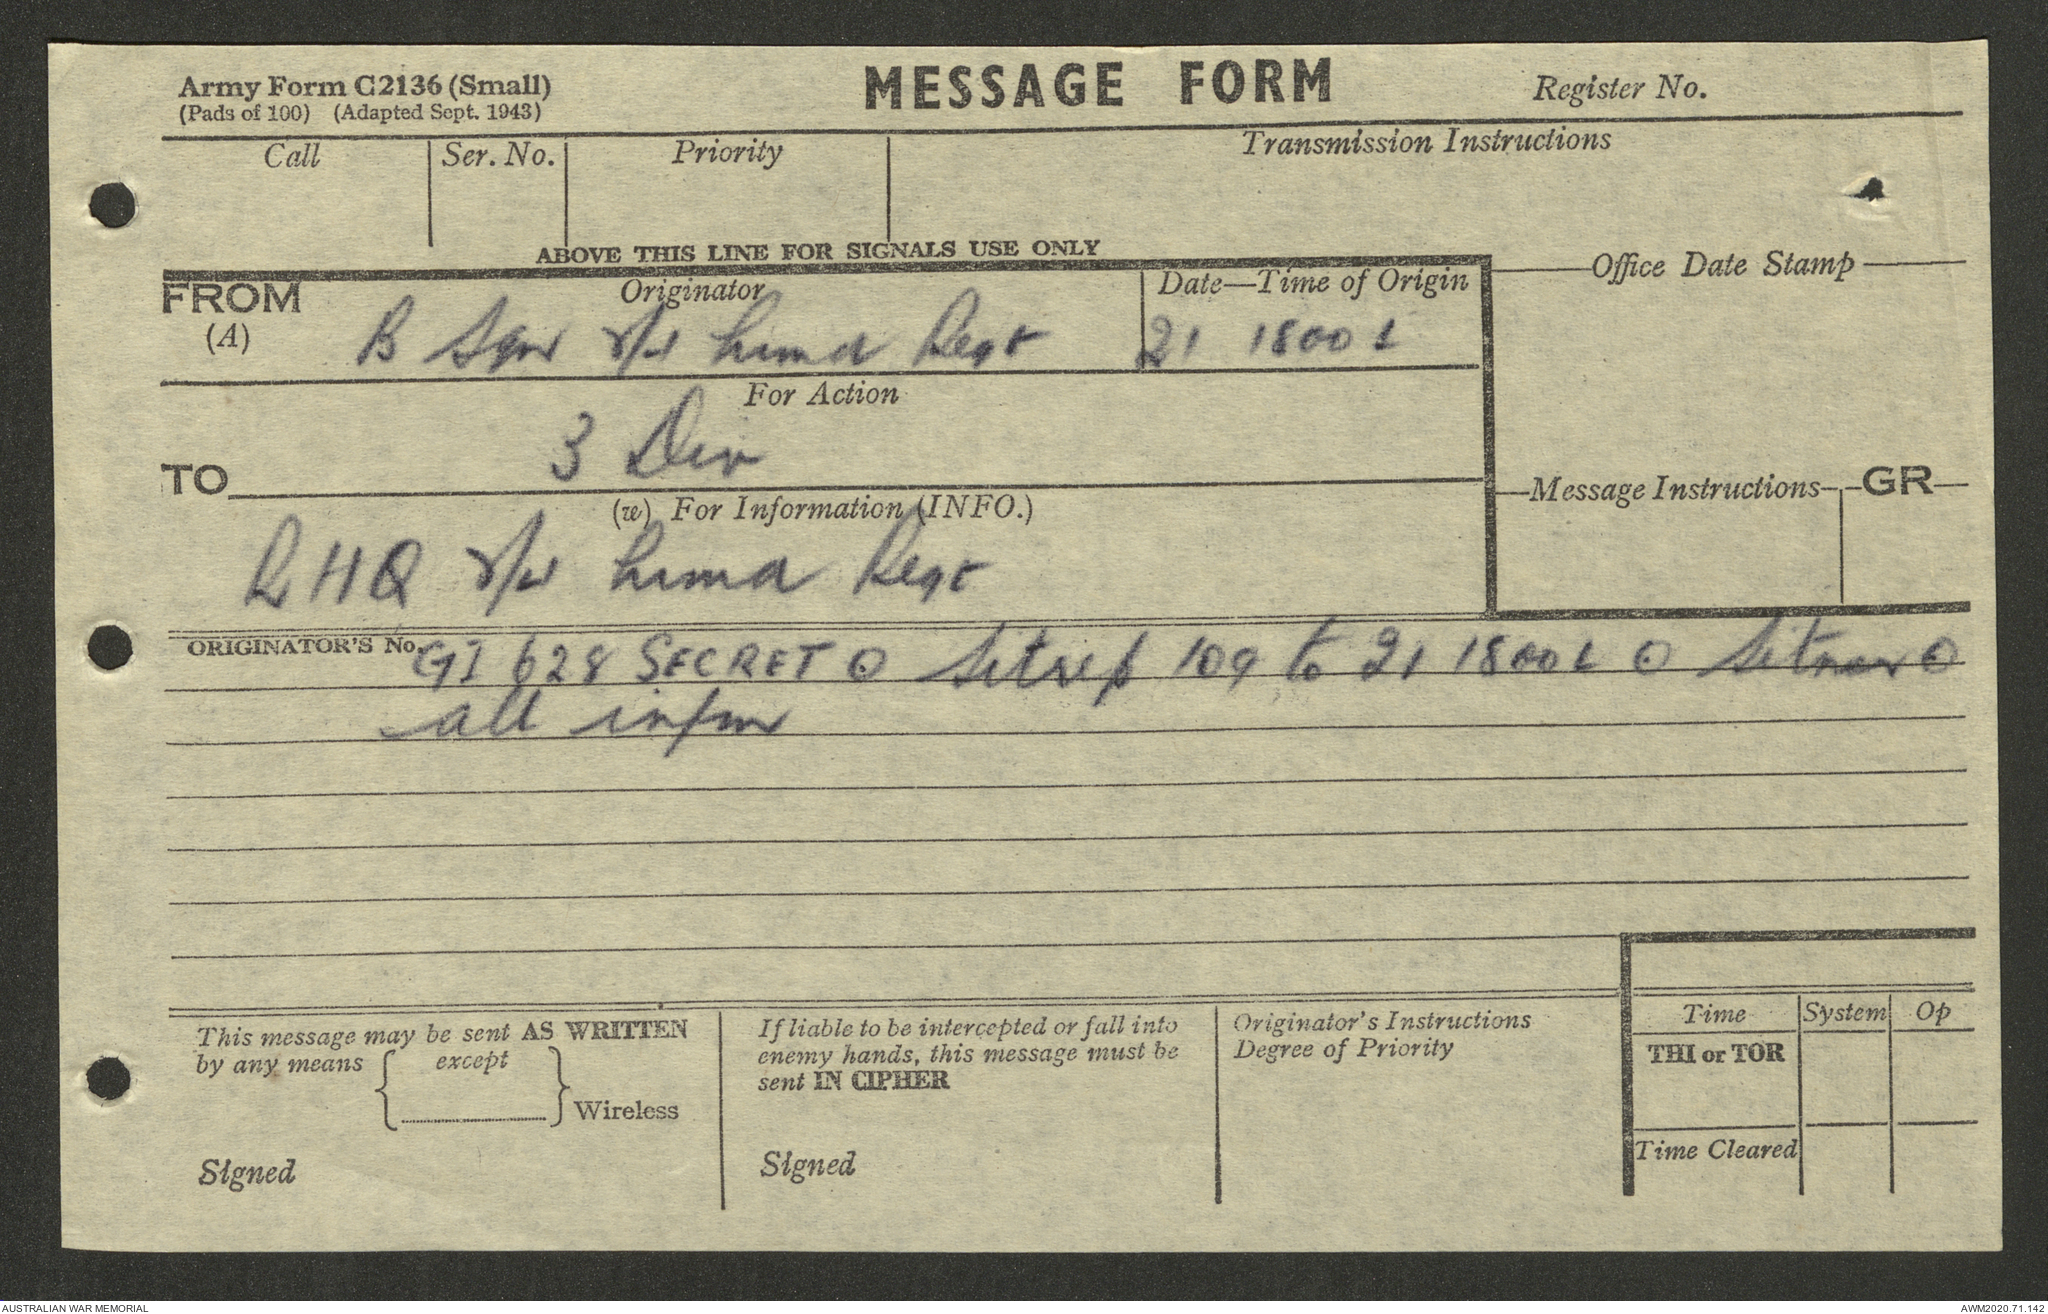 Army Form C2136 (Small)
(Pads of 100) (Adapted Sept. 1943)
MESSAGE FORM
Register No.
Call
Ser. No.
Priority
Transmission Instructions
ABOVE THIS LINE FOR SIGNALS USE ONLY
FROM
(A)
Originator
Date—Time of Origin
Office Date Stamp
B Sqn 2/4 Armd Regt 21 1800 L
For Action
3 Div
TO
(w) For Information (INFO.)
Message Instructions
GR
RHQ 2/4 Armd Regt
ORIGINATOR'S No.
GI 628 SECRET O Sitrep 109 to 21 1800 L O Sitnor O
all infm
This message may be sent AS WRITTEN
by any means
except
Wireless
Signed
If liable to be intercepted or fall into
enemy hands, this message must be
sent IN CIPHER
Signed
Originator's Instructions
Degree of Priority
Time
System
Op
THI or TOR
Time Cleared
AUSTRALIAN WAR MEMORIAL
AWM2020.71.142